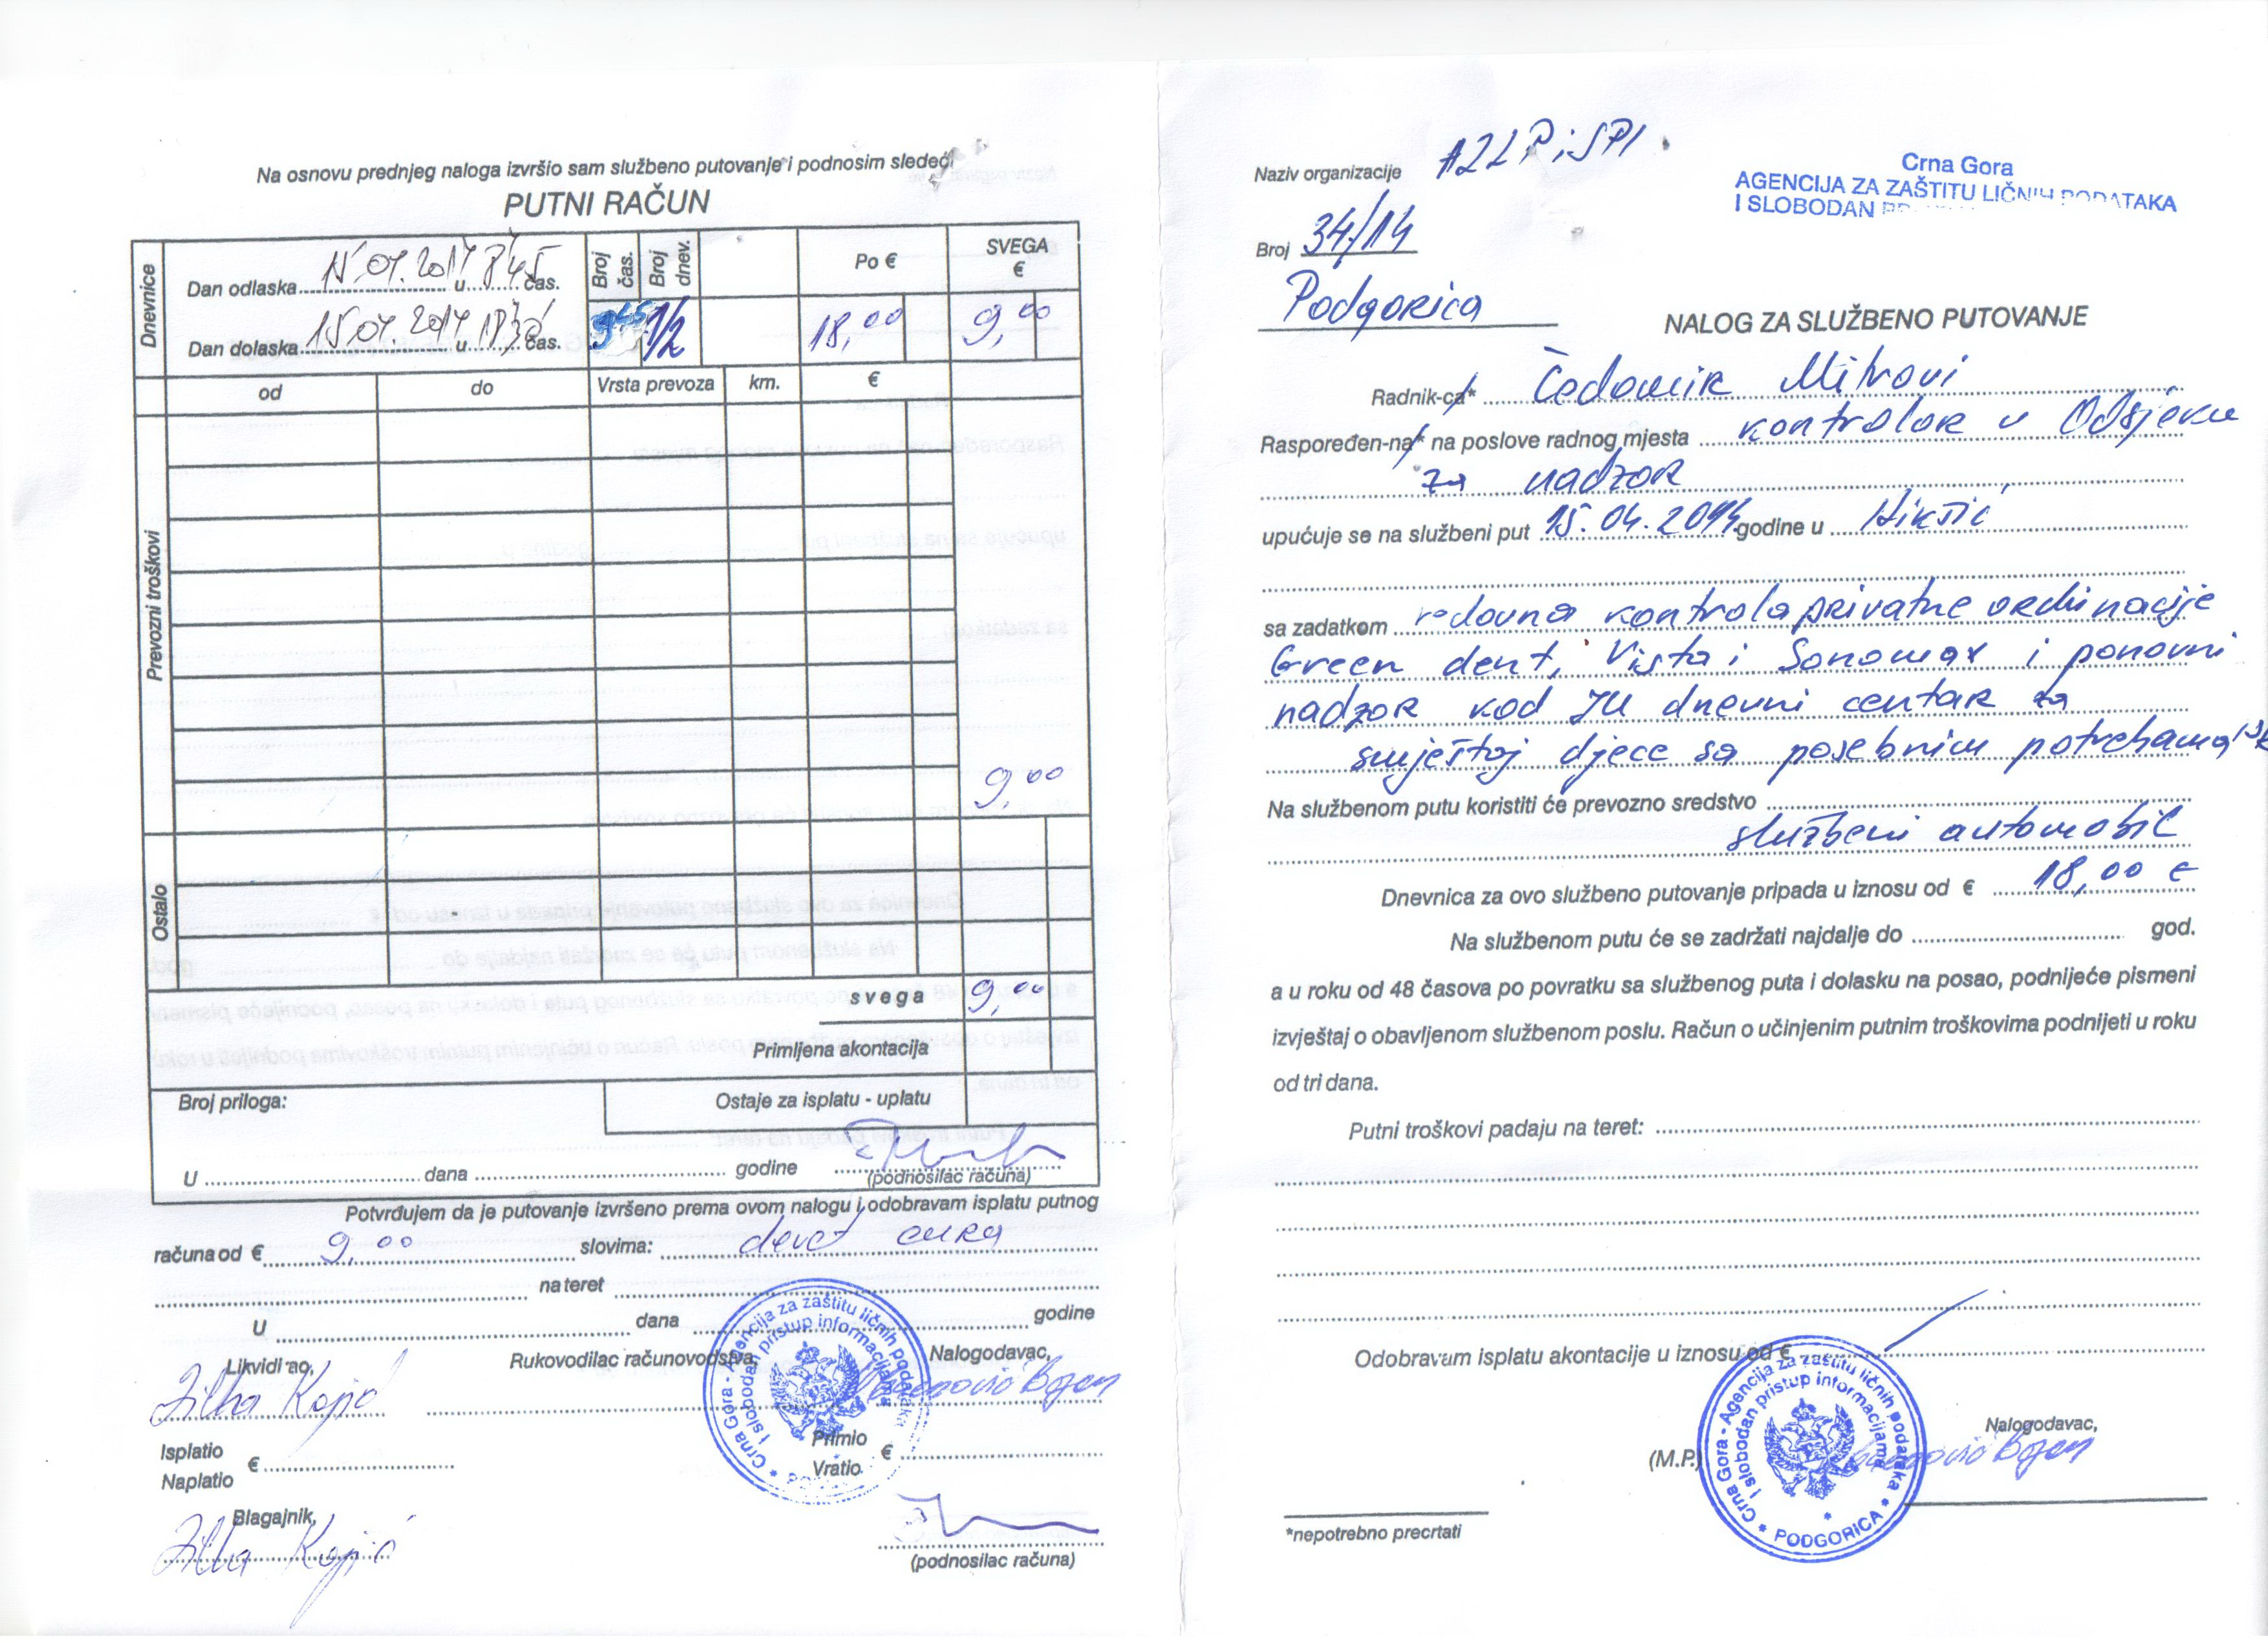 Na osnovu prednjeg naloga izvršio sam službeno putovanje i podnosim sledeći
PUTNI RAČUN
Dnevnice
Dan odlaska 15.04.2014 u 8 45 čas.
Dan dolaska 15.04.2014 u 18 30 čas.
Broj čas.
Broj dnev.
Po €
SVEGA €
9 45
1/2
18,00
9,00
od
do
Vrsta prevoza
km.
€
Prevozni troškovi
9,00
Ostalo
svega 9,00
Primljena akontacija
Broj priloga:
Ostaje za isplatu - uplatu
U dana godine
(podnosilac računa)
Potvrđujem da je putovanje izvršeno prema ovom nalogu i odobravam isplatu putnog
računa od € 9,00 slovima: devet eura
na teret
U dana godine
Likvidirao,
Rukovodilac računovodstva,
Nalogodavac,
Crna Gora - Agencija za zaštitu ličnih podataka
i slobodan pristup informacijama
Isplatio
Naplatio
€
Primio
Vratio
€
Blagajnik,
(podnosilac računa)
Naziv organizacije AZLP i SPI
Crna Gora
AGENCIJA ZA ZAŠTITU LIČNIH PODATAKA
I SLOBODAN
Broj 34/14
Podgorica
NALOG ZA SLUŽBENO PUTOVANJE
Radnik-ca* Čedomir Mitrovi
Raspoređen-na* na poslove radnog mjesta kontrolor u Odsjeku
za nadzor
upućuje se na službeni put 15.04.2014 godine u Nikšić
sa zadatkom redovna kontrola privatne ordinacije
Green dent, Vista i Sonomax i ponovni
nadzor kod JU dnevni centar za
smještaj djece sa posebnim potrebama
Na službenom putu koristiti će prevozno sredstvo
službeni automobil
Dnevnica za ovo službeno putovanje pripada u iznosu od € 18,00 €
Na službenom putu će se zadržati najdalje do god.
a u roku od 48 časova po povratku sa službenog puta i dolasku na posao, podnijeće pismeni
izvještaj o obavljenom službenom poslu. Račun o učinjenim putnim troškovima podnijeti u roku
od tri dana.
Putni troškovi padaju na teret:
Odobravam isplatu akontacije u iznosu od €
Crna Gora - Agencija za zaštitu ličnih podataka
i slobodan pristup informacijama
PODGORICA
(M.P.)
Nalogodavac,
*nepotrebno precrtati